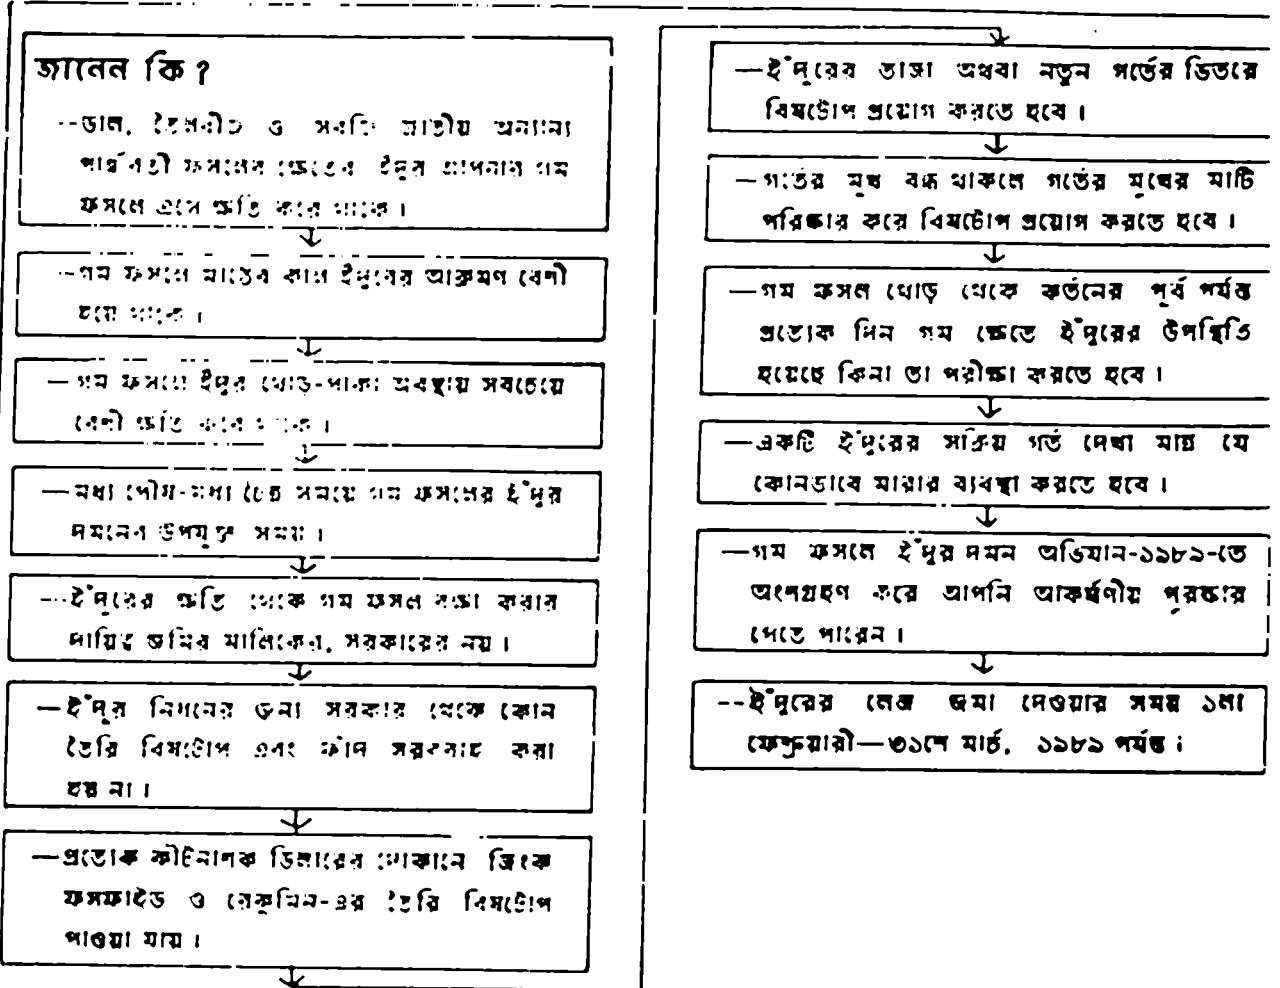 জানেন কি?
--ডাল, তৈলবীজ ও সবজি জাতীয় অন্যান্য
পার্শ্ববর্তী ফসলের ক্ষেতের ইঁদুর আপনার গম
ফসলে এসে ক্ষতি করে থাকে।
--গম ফসলে মাঠের কাল ইঁদুরের আক্রমণ বেশী
হয়ে থাকে।
—গম ফসলে ইঁদুর থোড়-পাকা অবস্থায় সবচেয়ে
বেশী ক্ষতি করে থাকে।
—মধ্য পৌষ-মধ্য চৈত্র সময়ে গম ফসলের ইঁদুর
দমনের উপযুক্ত সময়।
--ইঁদুরের ক্ষতি থেকে গম ফসল রক্ষা করার
দায়িত্ব জমির মালিকের, সরকারের নয়।
—ইঁদুর নিধনের জন্য সরকার থেকে কোন
তৈরি বিষটোপ এবং ফাঁদ সরবরাহ করা
হয় না।
—প্রত্যেক কীটনাশক ডিলারের দোকানে জিংক
ফসফাইড ও রেকুমিন-এর তৈরি বিষটোপ
পাওয়া যায়।
—ইঁদুরের তাজা অথবা নতুন গর্তের ভিতরে
বিষটোপ প্রয়োগ করতে হবে।
—গর্তের মুখ বন্ধ থাকলে গর্তের মুখের মাটি
পরিষ্কার করে বিষটোপ প্রয়োগ করতে হবে।
—গম ফসল থোড় থেকে কর্তনের পূর্ব পর্যন্ত
প্রত্যেক দিন গম ক্ষেতে ইঁদুরের উপস্থিতি
হয়েছে কিনা তা পরীক্ষা করতে হবে।
—একটি ইঁদুরের সক্রিয় গর্ত দেখা মাত্র যে
কোনভাবে মারার ব্যবস্থা করতে হবে।
—গম ফসলে ইঁদুর দমন অভিযান-১৯৮৯-তে
অংশগ্রহণ করে আপনি আকর্ষণীয় পুরস্কার
পেতে পারেন।
--ইঁদুরের লেজ জমা দেওয়ার সময় ১লা
ফেব্রুয়ারী—৩১শে মার্চ, ১৯৮৯ পর্যন্ত।